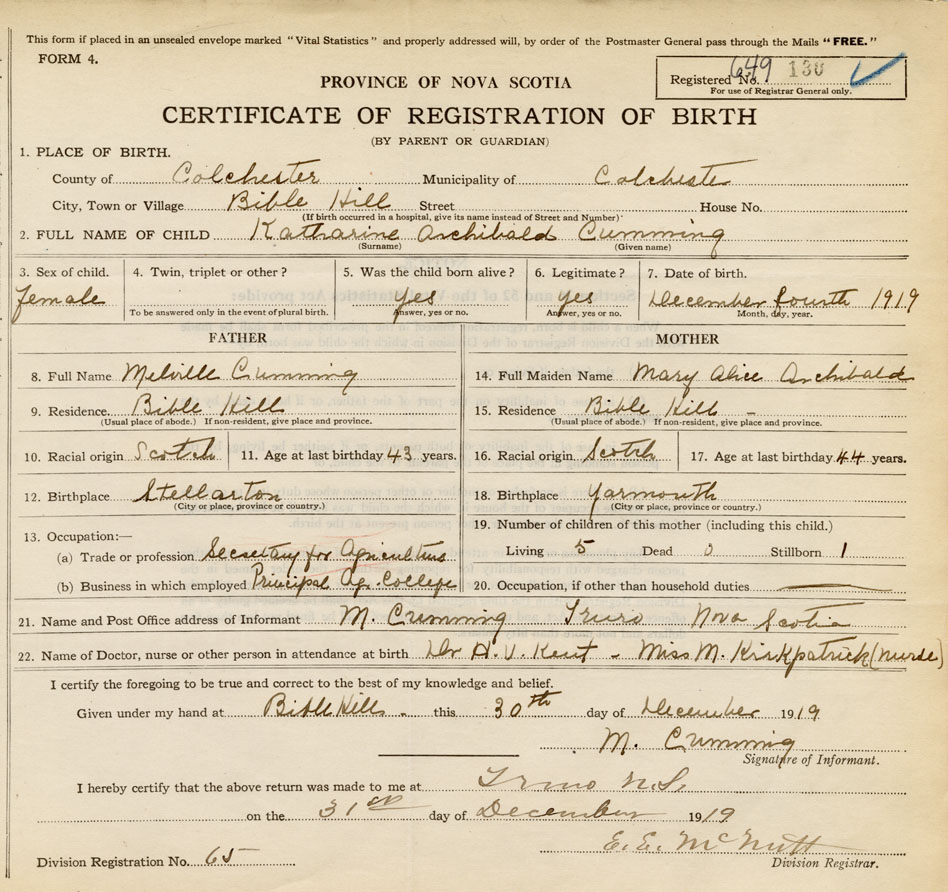 This form if placed in an unsealed envelope marked "Vital Statistics" and properly addressed will, by order of the Postmaster General pass through the Mails "FREE."
FORM 4.
Registered No. 649 130
For use of Registrar General only.
PROVINCE OF NOVA SCOTIA
CERTIFICATE OF REGISTRATION OF BIRTH
(BY PARENT OR GUARDIAN)
1. PLACE OF BIRTH.
County of Colchester Municipality of Colchester
City, Town or Village Bible Hill Street House No.
(If birth occurred in a hospital, give its name instead of Street and Number)
2. FULL NAME OF CHILD Katharine Archibald Cumming
(Surname) (Given name)
3. Sex of child. 4. Twin, triplet or other? 5. Was the child born alive? 6. Legitimate? 7. Date of birth.
female yes yes December fourth 1919
To be answered only in the event of plural birth. Answer, yes or no. Answer, yes or no. Month, day, year.
FATHER MOTHER
8. Full Name Melville Cumming 14. Full Maiden Name Mary Alice Archibald
9. Residence Bible Hill 15. Residence Bible Hill –
(Usual place of abode.) If non-resident, give place and province. (Usual place of abode.) If non-resident, give place and province.
10. Racial origin Scotch 11. Age at last birthday 43 years. 16. Racial origin Scotch 17. Age at last birthday 44 years.
12. Birthplace Stellarton 18. Birthplace Yarmouth
(City or place, province or country.) (City or place, province or country.)
13. Occupation:— 19. Number of children of this mother (including this child.)
(a) Trade or profession Secretary for Agriculture Living 5 Dead 0 Stillborn 1
(b) Business in which employed Principal Ag. College 20. Occupation, if other than household duties
21. Name and Post Office address of Informant M. Cumming Truro Nova Scotia
22. Name of Doctor, nurse or other person in attendance at birth Dr H. V. Kent – Miss M. Kirkpatrick (nurse)
I certify the foregoing to be true and correct to the best of my knowledge and belief.
Given under my hand at Bible Hill this 30th day of December 1919
M. Cumming
Signature of Informant.
I hereby certify that the above return was made to me at Truro N.S.
on the 31st day of December 1919
E. E. McNutt
Division Registration No. 65 Division Registrar.